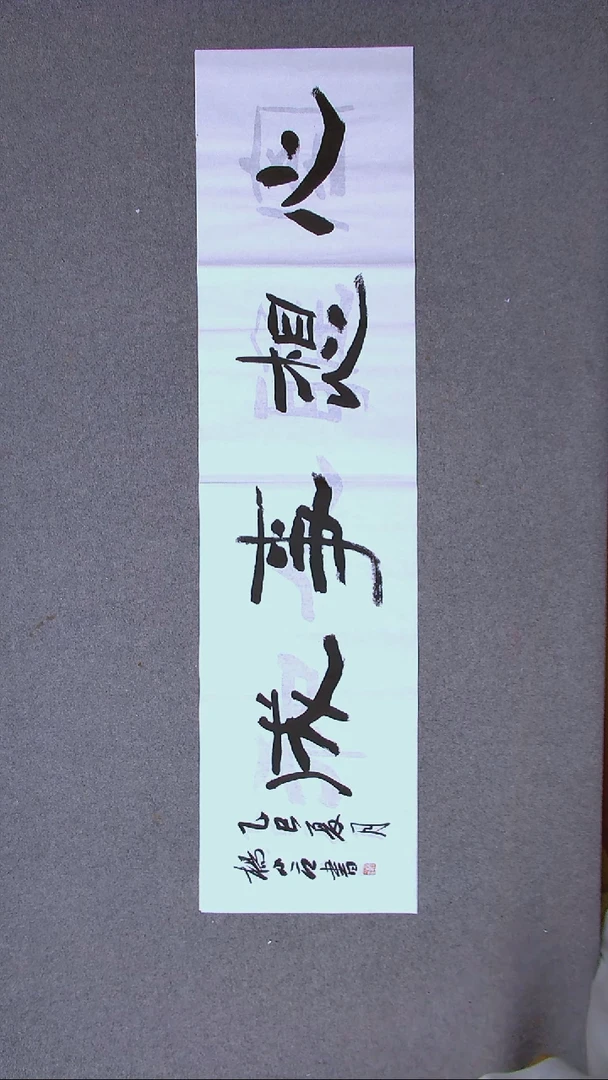 心想事成
乙巳夏月
書